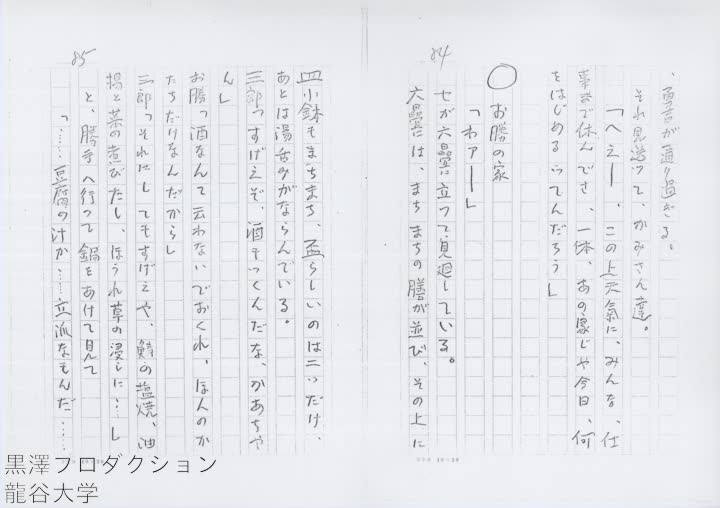 84
、勇吉が通り過ぎる。
それ見送って、かみさん達。
「へえー、この上天氣に、みんな、仕
事まで休んでさ、一体、あの家じゃ今日、何
をはじめるってんだろう」
○ お勝の家
「わァー」
七が六畳に立って見廻している。
六畳には、まちまちの膳が並び、その上に
85
皿小鉢もまちまち、盃らしいのは二つだけ、
あとは湯呑みがならんでいる。
三郎「すげえぞ、酒もつくんだな、かあちゃ
ん」
お勝「酒なんて云わないでおくれ、ほんのか
たちだけなんだから」
三郎「それにしてもすげえや、鯵の塩焼、油
揚と菜の煮びたし、ほうれ草の浸しに…し
と、勝手へ行って鍋をあけて見て
「……豆腐の汁か……立派なもんだ……
黒澤プロダクション
龍谷大学